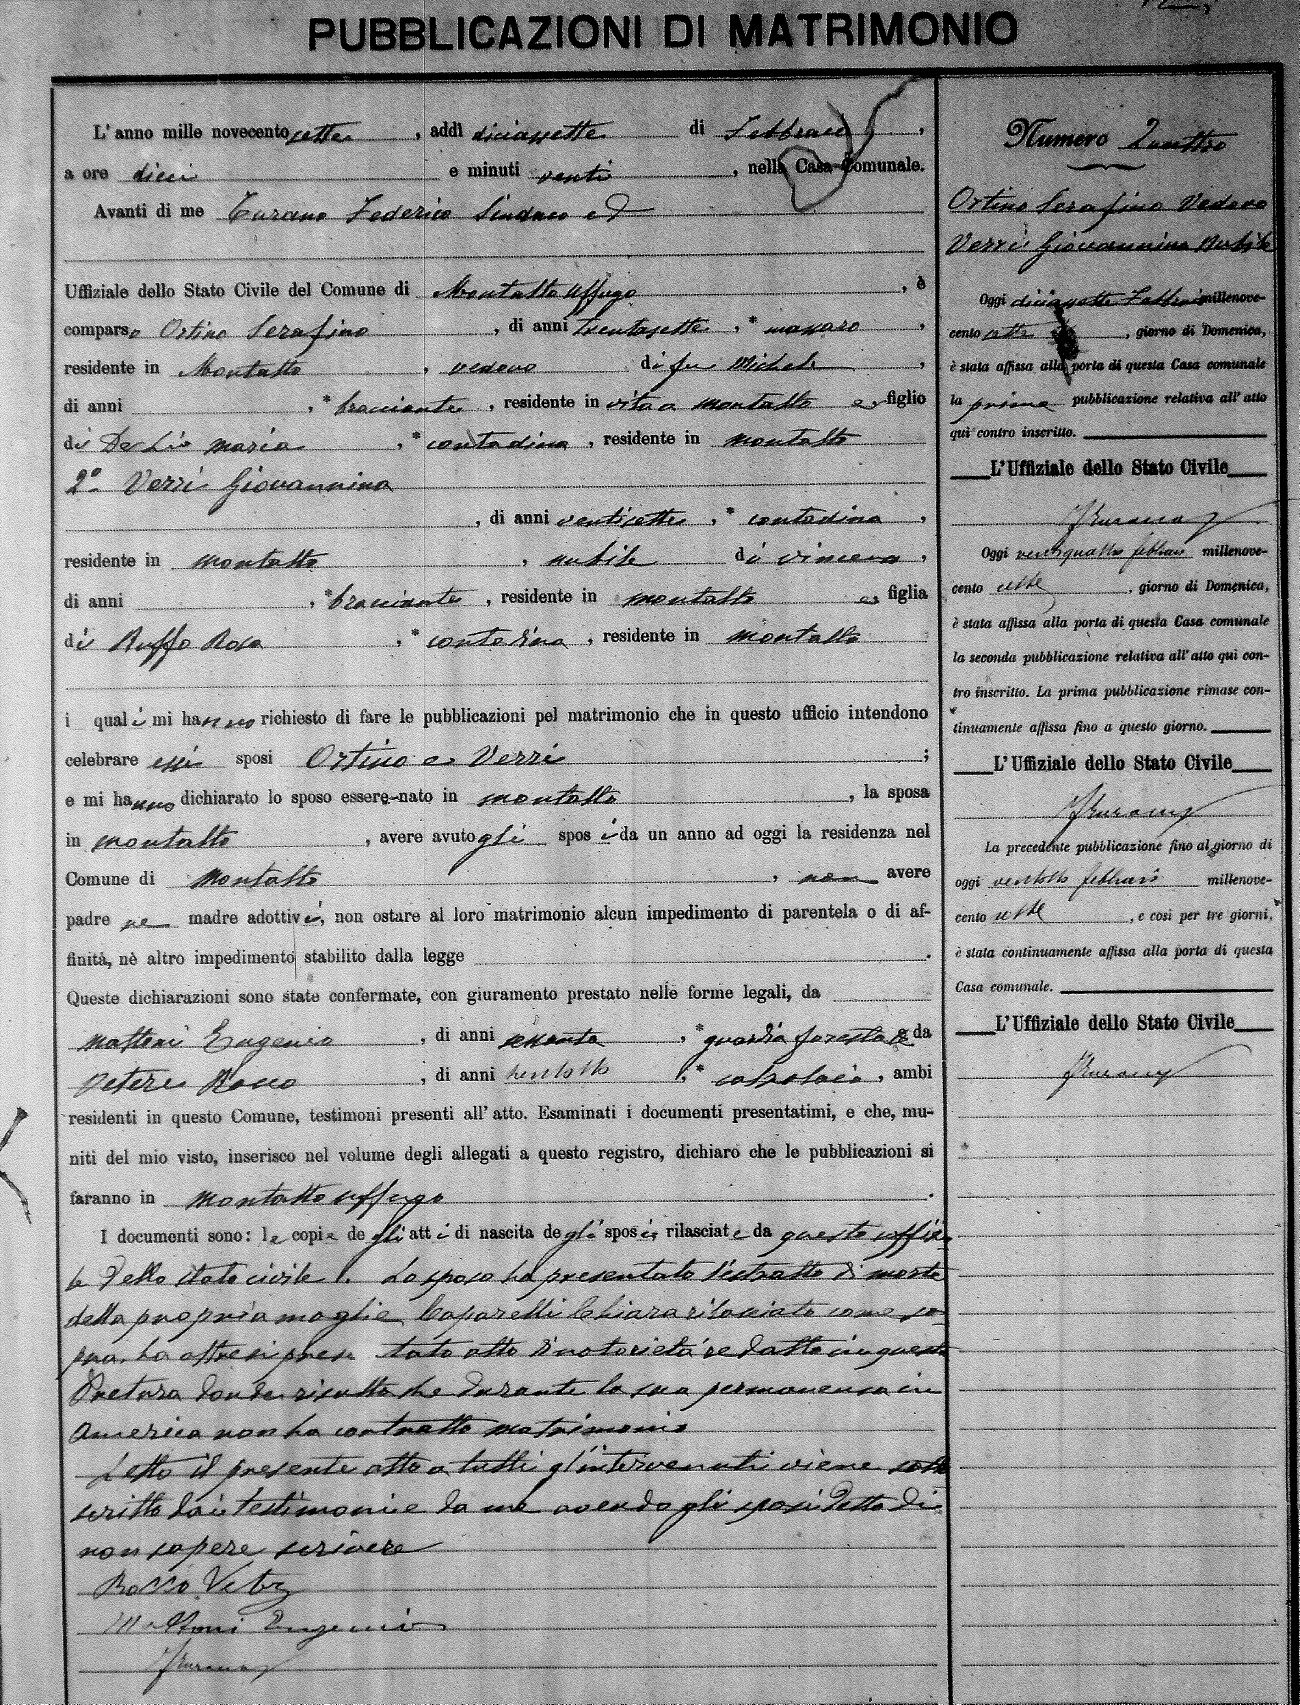 PUBBLICAZIONI DI MATRIMONIO
L'anno mille novecento sette, addì diciassette di Febbraio,
a ore dieci e minuti venti, nella Casa Comunale.
Avanti di me Turano Federico Sindaco ed
Uffiziale dello Stato Civile del Comune di Montalto Uffugo, è
comparso Ortino Serafino, di anni trentasette, * massaro,
residente in Montalto, vedovo di fu Michele,
di anni , * bracciante, residente in vita a Montalto e, figlio
di De Lio Maria, * contadina, residente in Montalto
2° Verri Giovannina
, di anni ventisette, * contadina,
residente in Montalto, nubile di
di anni , * bracciante, residente in Montalto e, figlia
di Ruffo Rosa, * contadina, residente in Montalto
i quali mi hanno richiesto di fare le pubblicazioni pel matrimonio che in questo ufficio intendono
celebrare essi sposi Ortino e Verri ;
e mi hanno dichiarato lo sposo essere nato in Montalto, la sposa
in Montalto, avere avuto gli sposi da un anno ad oggi la residenza nel
Comune di Montalto, non avere
padre ne madre adottivi, non ostare al loro matrimonio alcun impedimento di parentela o di af-
finità, nè altro impedimento stabilito dalla legge .
Queste dichiarazioni sono state confermate, con giuramento prestato nelle forme legali, da
Mattoni Eugenio, di anni sessanta, * guardia forestale e da
Vetere Rocco, di anni ventotto, * calzolaio, ambi
residenti in questo Comune, testimoni presenti all'atto. Esaminati i documenti presentatimi, e che, mu-
niti del mio visto, inserisco nel volume degli allegati a questo registro, dichiaro che le pubblicazioni si
faranno in Montalto Uffugo.
I documenti sono: le copie degli atti di nascita degli sposi rilasciate da questo uffizia
le dello stato civile. Lo sposo ha presentato l'estratto di morte
della propria moglie Caparelli Chiara rilasciato come so
pra, ha altresì presentato atto di notorietà redatto in questa
Pretura donde risulta che durante la sua permanenza in
America non ha contratto matrimonio
Letto il presente atto a tutti gl'intervenuti viene sotto
scritto dai testimoni e da me avendo gli sposi detto di
non sapere scrivere
Rocco Vetere
Mattoni Eugenio
FTurano
Numero Quattro
Ortino Serafino Vedovo
Verri Giovannina Nubile
Oggi diciassette Febbraio millenove-
cento sette, giorno di Domenica,
è stata affissa alla porta di questa Casa comunale
la prima pubblicazione relativa all'atto
qui contro inscritto.
L'Uffiziale dello Stato Civile
FTurano
Oggi ventiquattro febbraio millenove-
cento sette, giorno di Domenica,
è stata affissa alla porta di questa Casa comunale
la seconda pubblicazione relativa all'atto qui con-
tro inscritto. La prima pubblicazione rimase con-
tinuamente affissa fino a questo giorno.
L'Uffiziale dello Stato Civile
FTurano
La precedente pubblicazione fino al giorno di
oggi ventotto febbraio millenove-
cento sette, e così per tre giorni,
è stata continuamente affissa alla porta di questa
Casa comunale.
L'Uffiziale dello Stato Civile
FTurano